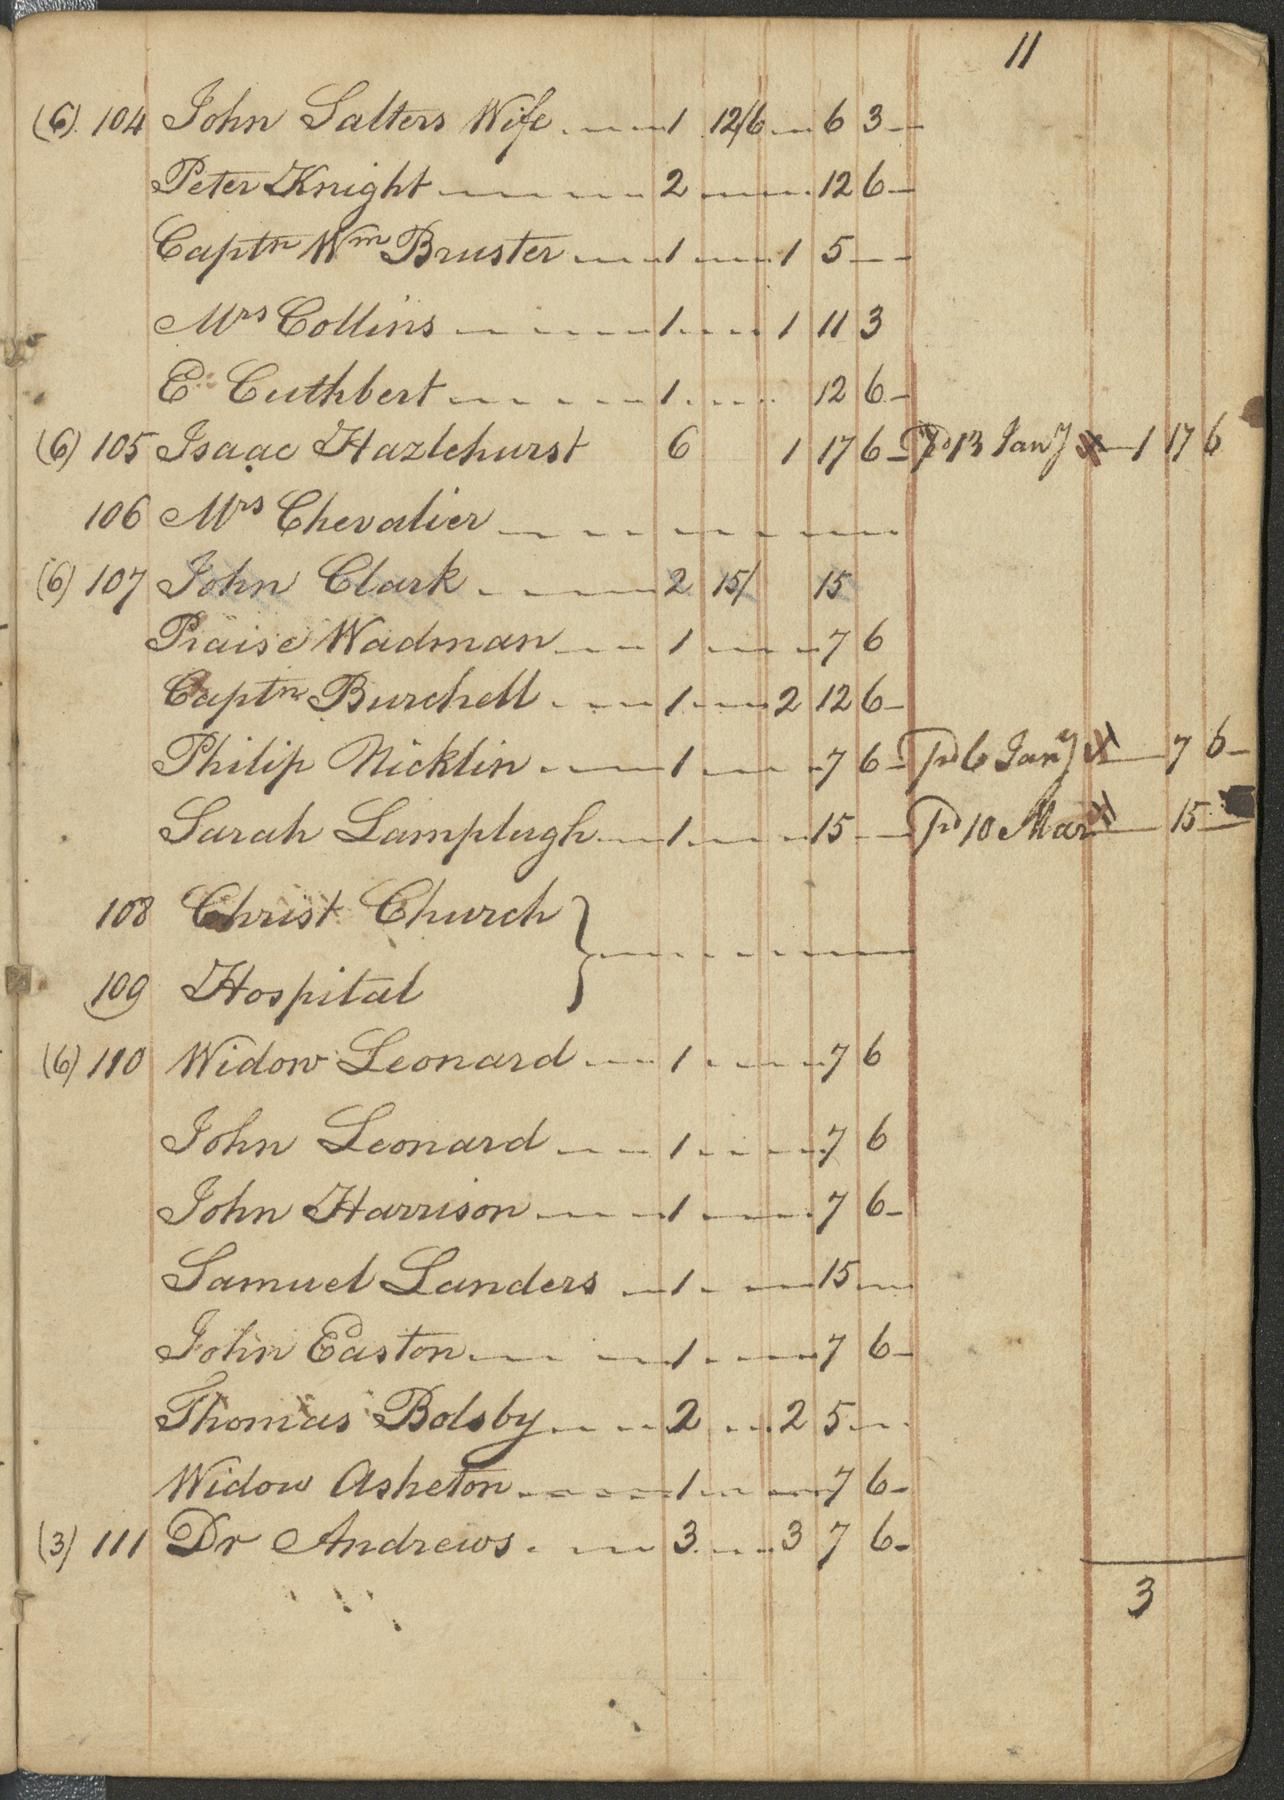 11
(6) 104 John Salters Wife 1 12/6 6 3
Peter Knight 2 12 6
Captn Wm Bruster 1 1 5
Mrs Collins 1 1 11 3
E Cuthbert 1 12 6
(6) 105 Isaac Hazlehurst 6 1 17 6 Pd 13 Jany 1 17 6
106 Mrs Chevalier
(6) 107 John Clark 2 15/ 15
Praise Wadman 1 7 6
Captn Burchell 1 2 12 6
Philip Nicklin 1 7 6 Pd 6 Jany 7 6
Sarah Lamplugh 1 15 Pd 10 Mar 15
108 Christ Church
109 Hospital
(6) 110 Widow Leonard 1 7 6
John Leonard 1 7 6
John Harrison 1 7 6
Samuel Landers 1 15
John Easton 1 7 6
Thomas Bolsby 2 2 5
Widow Asheton 1 7 6
(3) 111 Dr Andrews 3 3 7 6
3